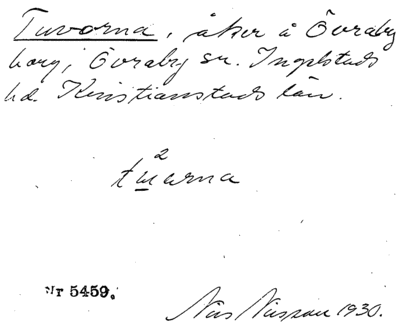 Tuvorna, åker å Övraby
borg, Övraby sn. Ingelstads
hd. Kristianstads län.
2
tuarna
Nr 5459.
Nils Nilsson 1930.